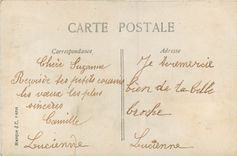 CARTE POSTALE
Correspondance
Adresse
Chère Suzanne
Reçoise tes petits cousins
les vœux les plus
sincères
Camille
Lucienne
Je te remercie
bien de ta belle
broche
Lucienne